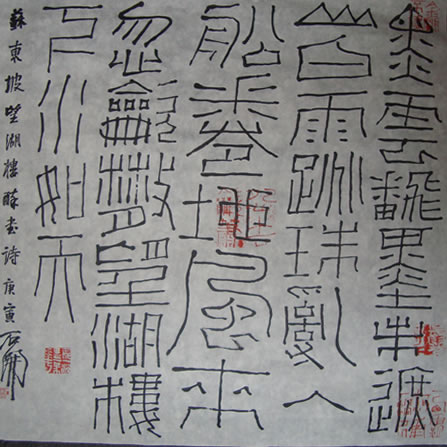 黑雲飜墨未遮
山白雨跳珠亂入
船卷地風來
忽龡散望湖樓
下水如天
蘇東坡望湖樓醉書詩庚寅